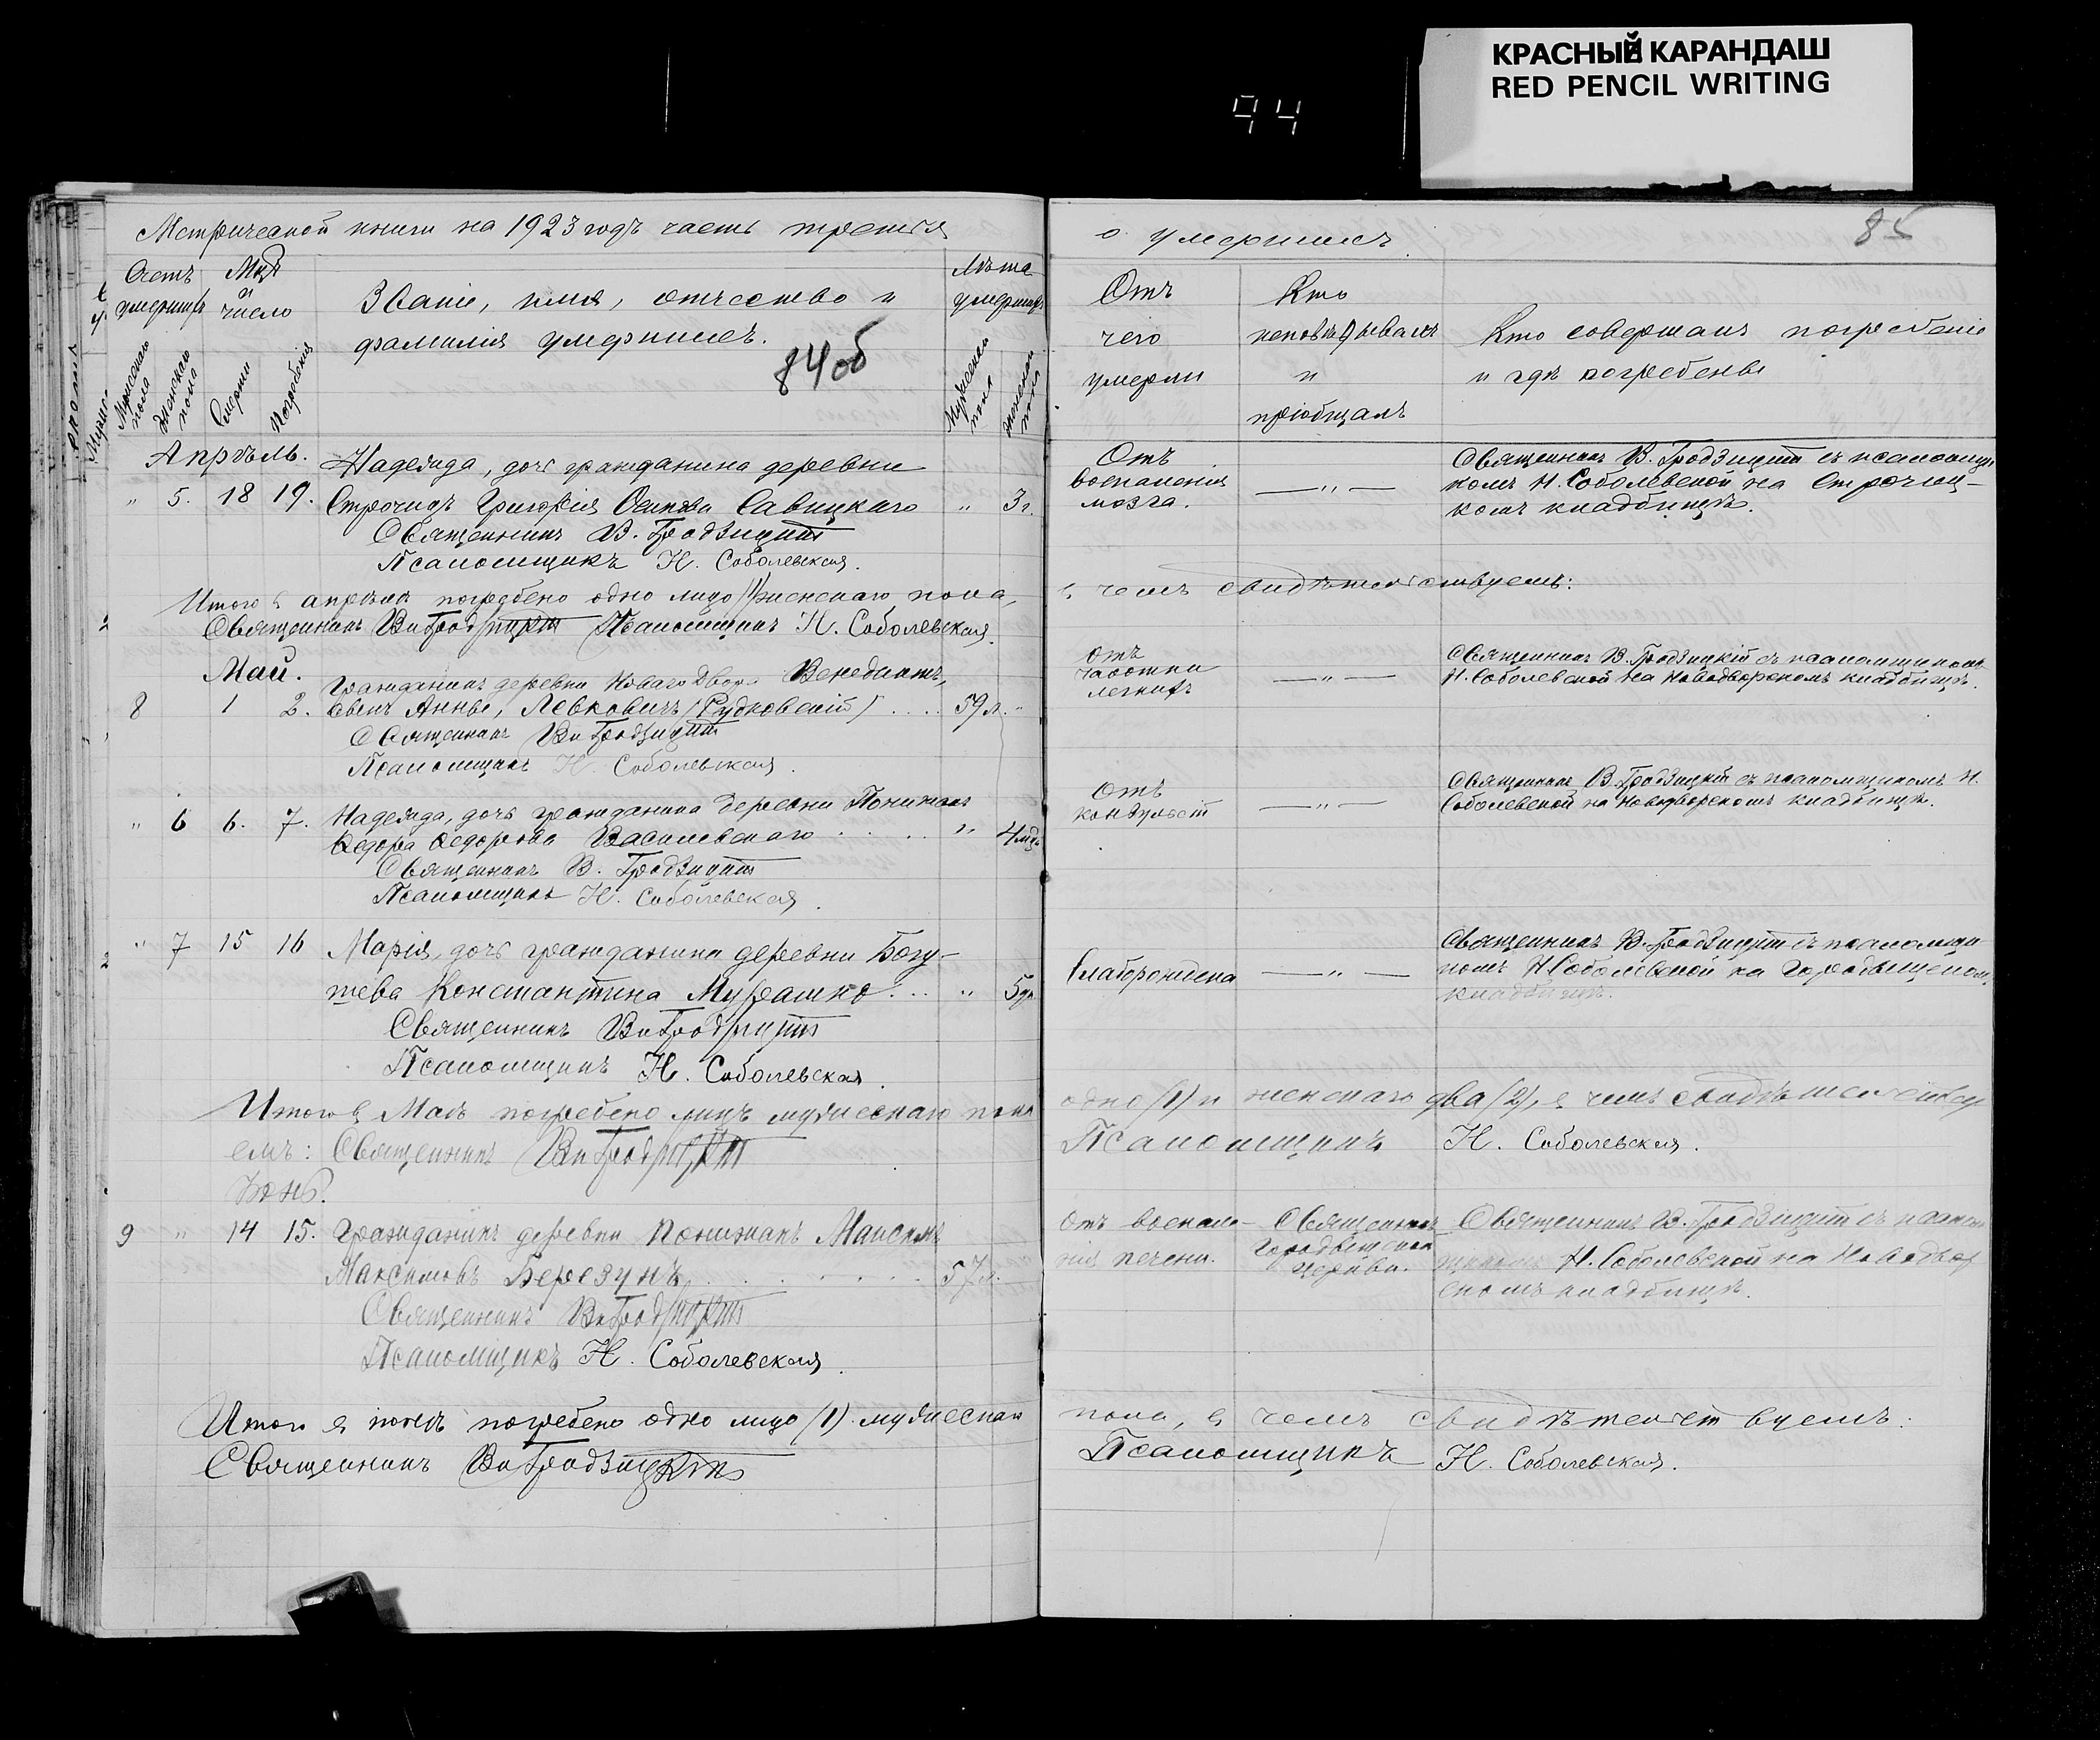 КРАСНЫЙ КАРАНДАШ
RED PENCIL WRITING
94
85
Метрической книги на 1923 годъ часть третья
о умершихъ.
Счетъ умершихъ
Мцъ и число
Званіе, имя, отчество и
фамилія умершихъ.
84об
Лѣта умершихъ
Мужескаго пола
Женскаго пола
Смерти
Погребенія
Мужескаго пола
Женскаго пола
Отъ
чего
умерли
Кто
исповѣдывалъ
и
пріобщалъ
Кто совершалъ погребеніе
и гдѣ погребены
Апрѣль.
" 5. 18 19.
Надежда, дочь гражданина деревни
Строчицъ Григорія Осипова Савицкаго " 3г.
Священникъ В. Гродзицкій
Псаломщикъ Н. Соболевская.
Отъ
воспаленія
мозга.
— " —
Священникъ В. Гродзицкій съ псаломщи-
комъ Н. Соболевской на Строчиц-
комъ кладбищѣ.
Итого въ апрѣлѣ погребено одно лицо (1) женскаго пола,
въ чемъ свидѣтельствуемъ:
Священникъ Гродзицкій Псаломщикъ Н. Соболевская.
Май.
8 1 2.
Гражданинъ деревни Новаго Двора Венедиктъ,
сынъ Анны, Левковичъ (Рудковскій) .... 59 л. "
Священникъ Гродзицкій
Псаломщикъ Н. Соболевская.
Отъ
чахотки
легкихъ
— " —
Священникъ В. Гродзицкій съ псаломщикомъ
Н. Соболевской на Новодворскомъ кладбищѣ.
" 6 6. 7.
Надежда, дочь гражданина деревни Понижанъ
Ѳедора Ѳедорова Василевскаго ..... " 4 мца
Священникъ В. Гродзицкій
Псаломщикъ Н. Соболевская.
Отъ
конвульсій
— " —
Священникъ В. Гродзицкій съ псаломщикомъ Н.
Соболевской на Новодворскомъ кладбищѣ.
" 7 15 16
Марія, дочь гражданина деревни Богу-
шева Константина Мурашко ... " 5 дн.
Священникъ Гродзицкій
Псаломщикъ Н. Соболевская.
Слаборождена
— " —
Священникъ В. Гродзицкій съ псаломщи-
комъ Н. Соболевской на Городищскомъ
кладбищѣ.
Итого въ Маѣ погребено лицъ мужескаго пола
одно (1) и женскаго два (2), въ чемъ свидѣтельству
емъ: Священникъ Гродзицкій
Псаломщикъ Н. Соболевская.
Іюнь.
9 " 14 15.
Гражданинъ деревни Понижанъ Максимъ
Максимовъ Березунъ ........ 57 л.
Священникъ Гродзицкій
Псаломщикъ Н. Соболевская.
Отъ воспале-
нія печени.
Священникъ
Городищской
церкви.
Священникъ В. Гродзицкій съ псалом
щикомъ Н. Соболевской на Новодвор
скомъ кладбищѣ.
Итого въ іюнѣ погребено одно лицо (1) мужескаго
пола, въ чемъ свидѣтельствуемъ:
Священникъ Гродзицкій
Псаломщикъ Н. Соболевская.